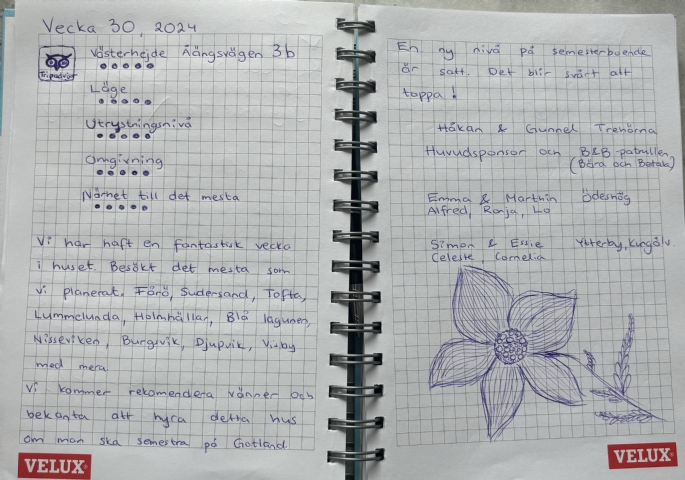 Vecka 30, 2024
Tripadvisor
Västerhejde Äängsvägen 3b
Läge
Utrystningsnivå
Omgivning
Närhet till det mesta
Vi har haft en fantastisk vecka
i huset. Besökt det mesta som
vi planerat. Fårö, Sudersand, Tofta,
Lummelunda, Holmhällar, Blå lagunen,
Nisseviken, Burgsvik, Djupvik, Visby
med mera.
Vi kommer rekomendera vänner och
bekanta att hyra detta hus
om man ska semestra på Gotland
VELUX
En ny nivå på semesterboende
är satt. Det blir svårt att
toppa!
Håkan & Gunnel Trehörna
Huvudsponsor och B&B-patrullen
(Bära och Betala)
Emma & Marthin Ödeshög
Alfred, Ronja, Lo
Simon & Essie Ytterby, Kungälv
Celeste, Cornelia
VELUX